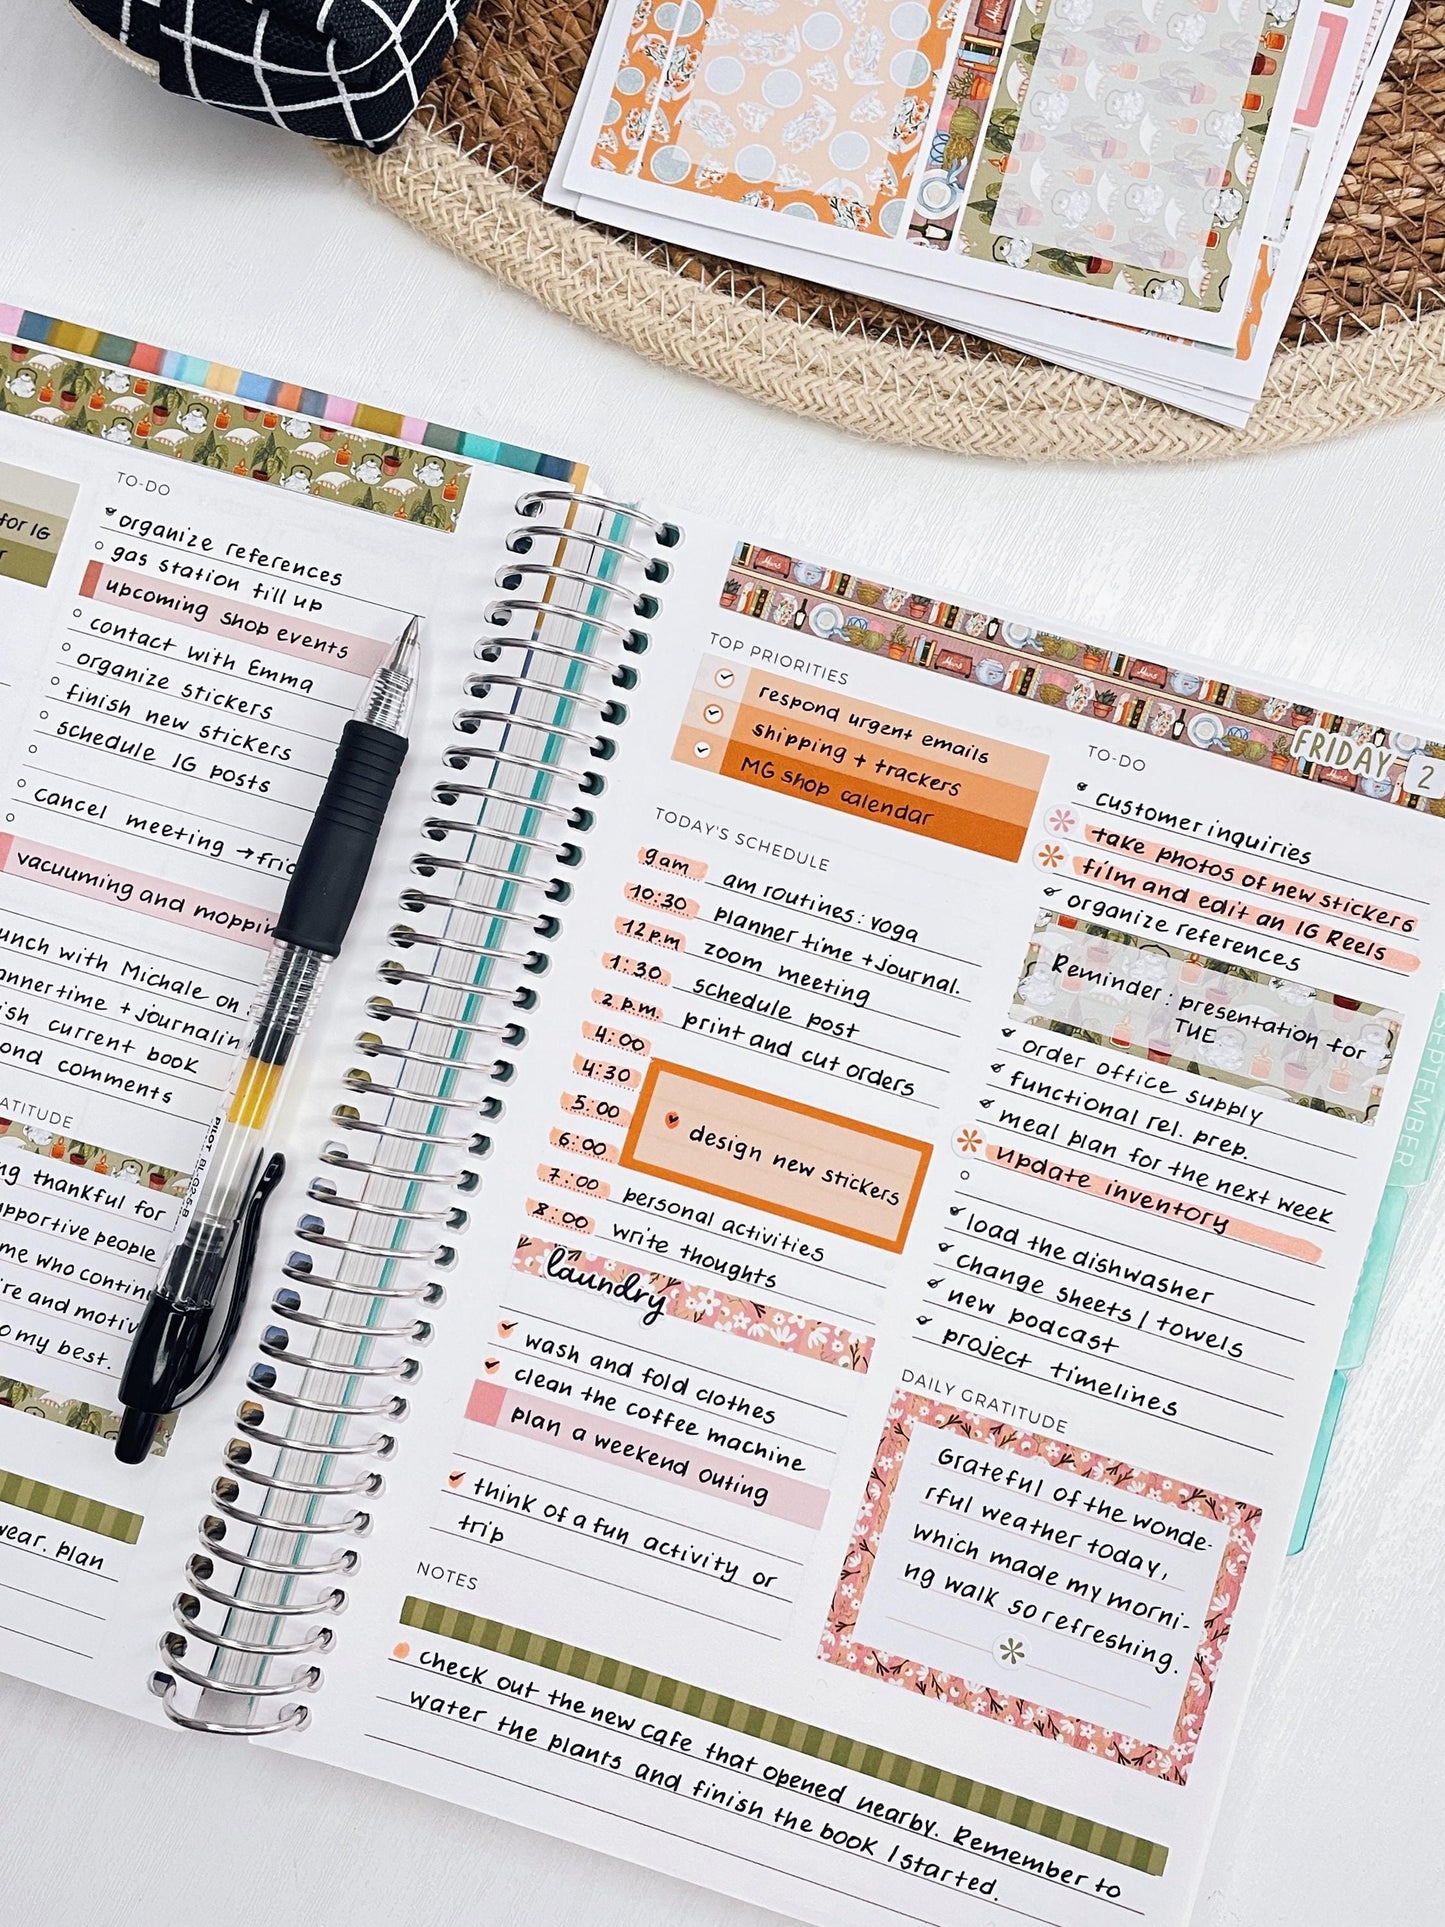 for IG
TO-DO
organize references
gas station fill up
upcoming shop events
contact with Emma
organize stickers
finish new stickers
schedule IG posts
cancel meeting →frid
vacuuming and moppin
unch with Michale on
annertime + journalin
ish current book
ond comments
ATITUDE
ng thankful for
upportive people
me who contin
ire and motiv
o my best.
wear. plan
PILOT BL-G2-5-B
FRIDAY 2
TOP PRIORITIES
respond urgent emails
shipping + trackers
MG shop calendar
TODAY'S SCHEDULE
9am am routines: yoga
10:30 planner time + journal.
12pm zoom meeting
1:30 schedule post
2 p.m. print and cut orders
4:00
4:30
5:00 design new stickers
6:00
7:00 personal activities
8:00 write thoughts
laundry
wash and fold clothes
clean the coffee machine
plan a weekend outing
think of a fun activity or
trip
TO-DO
customer inquiries
take photos of new stickers
film and edit an IG Reels
organize references
Reminder: presentation for
TUE
order office supply
functional rel. prep.
meal plan for the next week
update inventory
load the dishwasher
change sheets / towels
new podcast
project timelines
DAILY GRATITUDE
Grateful of the wonde-
rful weather today,
which made my morni-
ng walk so refreshing.
NOTES
check out the new cafe that opened nearby. Remember to
water the plants and finish the book I started.
SEPTEMBER